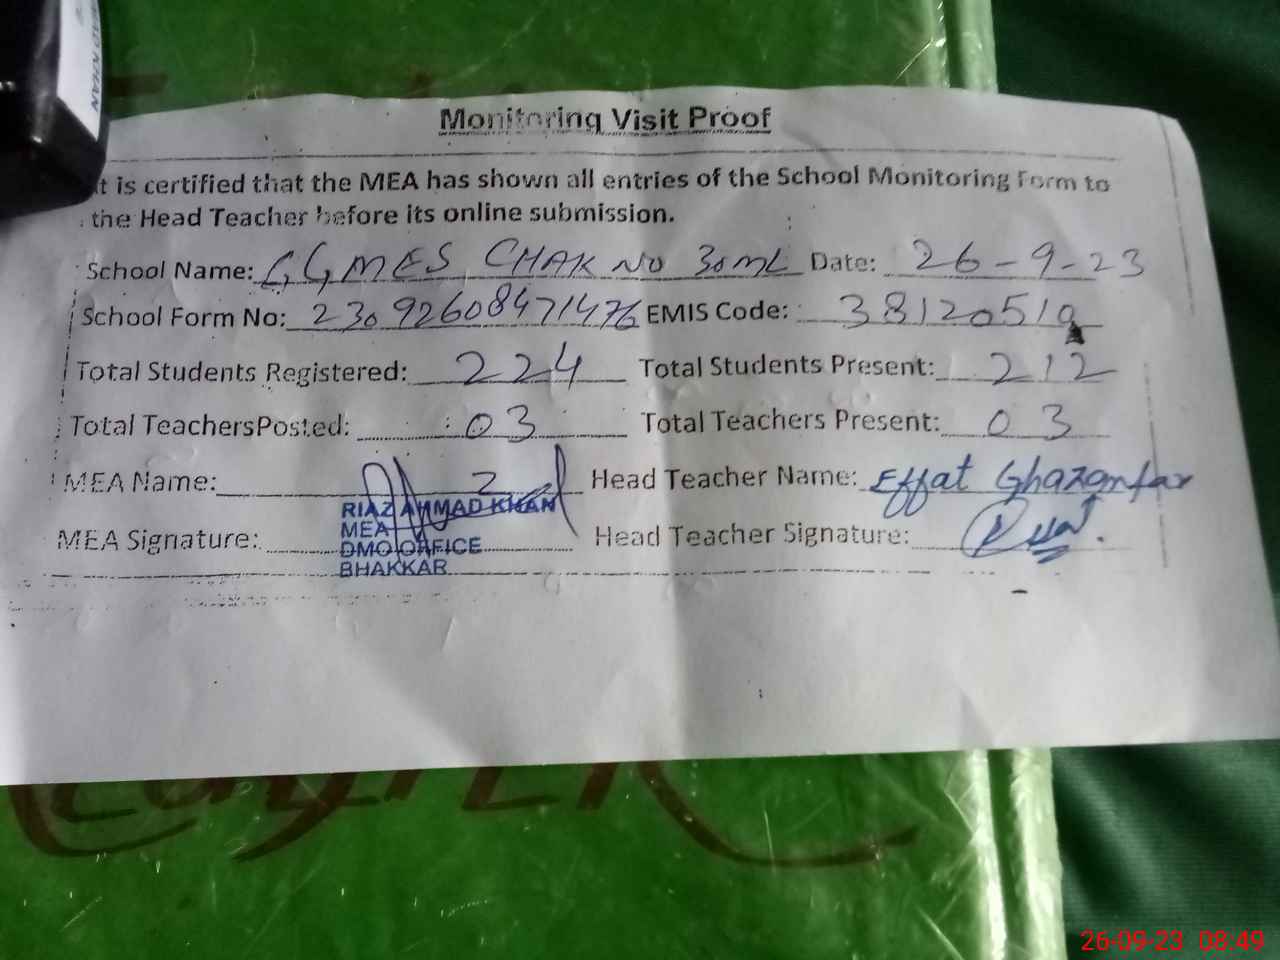 Monitoring Visit Proof
t is certified that the MEA has shown all entries of the School Monitoring Form to
the Head Teacher before its online submission.
School Name: GGMES CHAK NO 30ML Date: 26-9-23
School Form No: 23092608471476 EMIS Code: 38120519
Total Students Registered: 224 Total Students Present: 212
Total TeachersPosted: 03 Total Teachers Present: 03
MEA Name: Head Teacher Name: Effat Ghazanfar
RIAZ AHMAD KHAN
MEA
MEA Signature: Head Teacher Signature:
DMO OFFICE
BHAKKAR
26-09-23 08:49